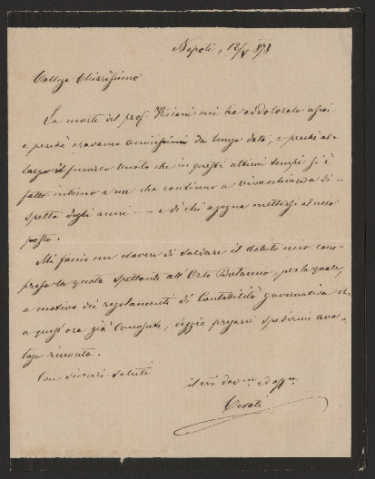 Napoli, 12/5 878
Collega Chiarissimo
La morte del prof. Visiani mi ha addolorato assai
e perchè eravamo amicissimi da lunga data, e perchè al-
largo il funereo vuoto che in questi ultimi tempi si è
fatto intorno a me che continuo a vivacchiare a di-
spetto degli anni — e di chi agogna mettersi al mio
posto.
Mi faccio un dovere di saldare il debito mio com-
presa la quota spettante all'Orto Botanico, per la quale,
a motivo dei regolamenti di Contabilità governativa che
a quest'ora già conoscete, deggio pregarvi spedirmi ana-
loga ricevuta.
Con sinceri saluti
il vr̃i devmo ed affmo
Cesati